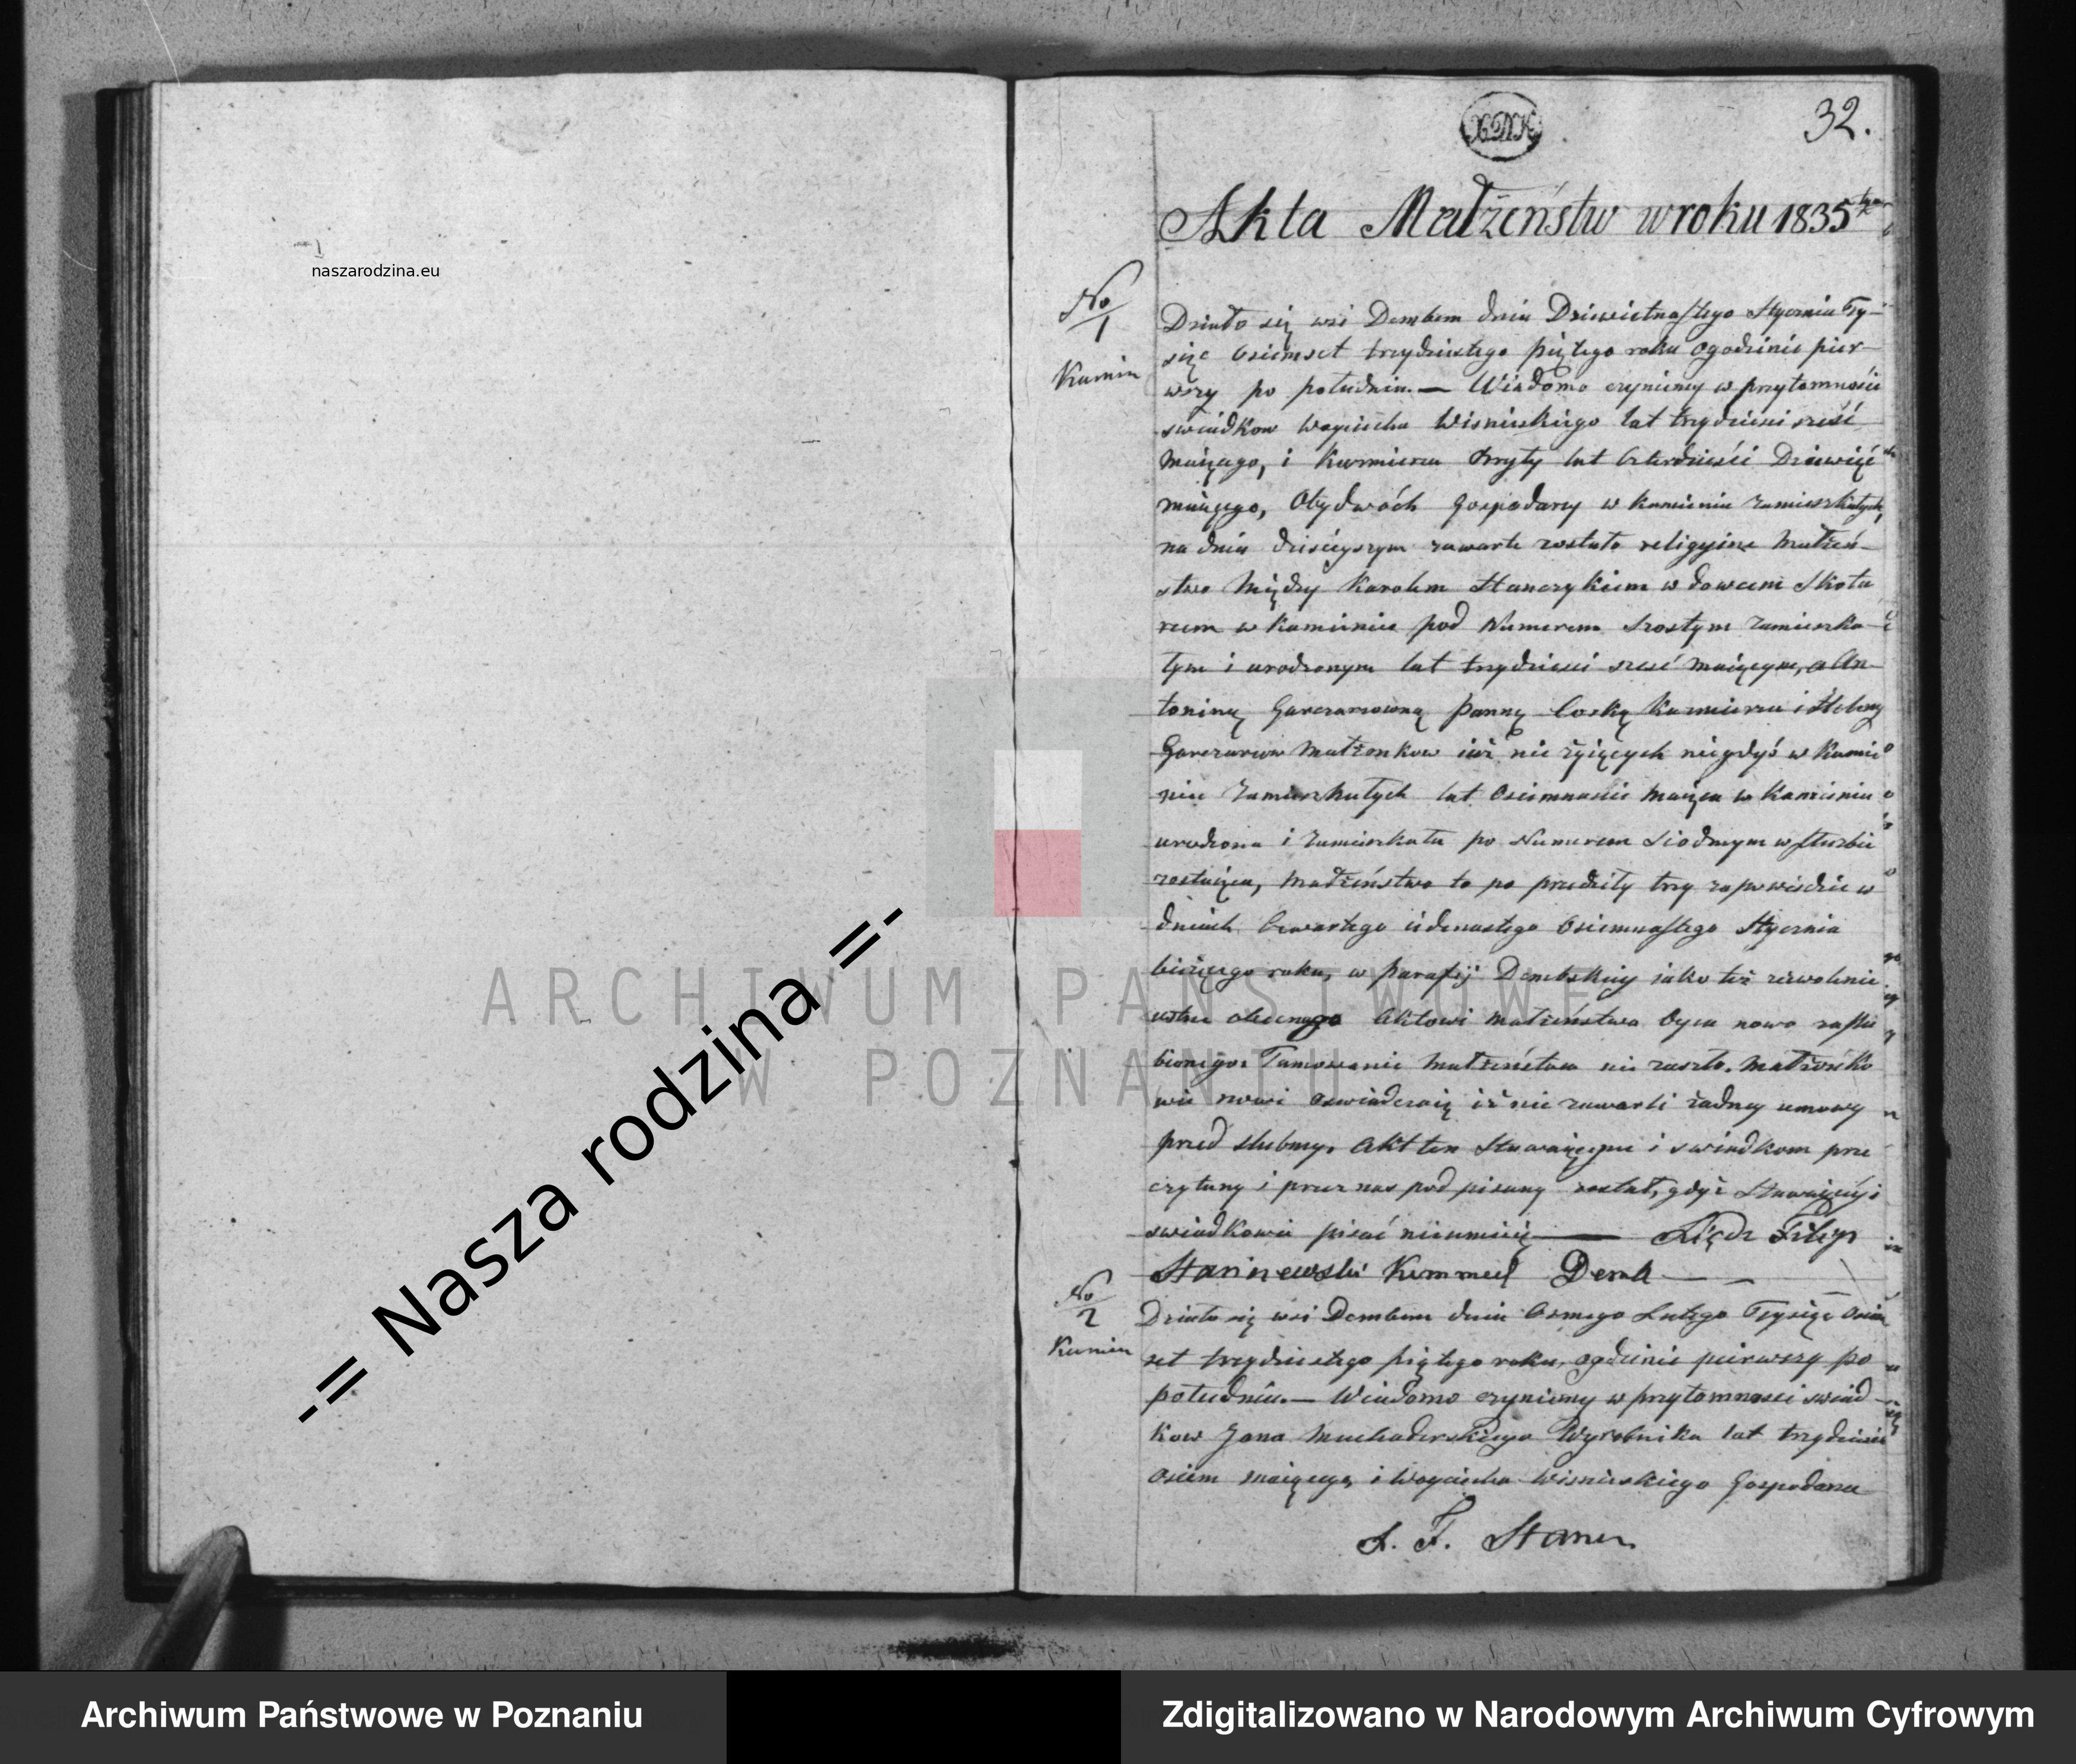 naszarodzina.eu
-= Nasza rodzina =-
ARCHIWUM PAŃSTWOWE
W POZNANIU
32.
Akta Małżeństw w roku 1835
No 1
Kamin
Działo się wsi Dembem dnia Dziewietnastego Stycznia Ty-
siąc Osiemset trzydziestego piątego roku o godzinie pier-
wszy po południu. — Wiadomo czyniemy w przytomności
swiadkow Woyciecha Wisniewskiego lat trzydzieści sześć
maiącego, i Kazmierza lat czterdzieści Dziewięć
maiącego, Obydwóch Gospodarzy w Kamieniu zamieszkałych,
na dniu dzisieyszym zawarte zostało religyine Małżeń-
stwo Między Karolem Stanczykiem wdowcem Skota
rzem w Kamieniu pod Numerem Szostym zamieszka-
łym i urodzonym lat trzydzieści sześć maiącym, a An-
toniną Garczarzowną Panną Corką Kazmierza i Heleny
Garczarzow małżonkow iuż nie żyiących niegdyś w Kamie
niu zamieszkałych lat Osiemnaście maiąca w Kamieniu
urodzona i zamieszkała po Numerem Siodmym w służbie
zostaiąca, Małżeństwo to po przedziły trzy zapowiedzie w
dniach Czwartego iedenastego Osiemnastego Stycznia
bieżącego roku, w parafij Dembskiey iako też zezwolenie
ustne obecnego Aktowi małżeństwa Oyca nowo zaślu
bionego. Tamowanie Małżeństwa nie zaszło. Małżonko
wie nowi oswiadczaią iż nie zawarli żadney umowy
przed slubney. Akt ten Stawaiącym i swiadkom prze
czytany i przez nas podpisany został, gdyż Stawaiący i
swiadkowie pisać nieumieią — Xiądz Filip
Stanizewski Demb
No 2
Kamien
Działo się wsi Dembem dnia Osmego Lutego Tysiąc Osiem
set trzydziestego piątego roku, o godzinie pierwszy po
południu. — Wiadomo czyniemy w przytomności swiad-
kow Jana Wyrobnika lat trzydzieści
osiem maiącego, i Woyciecha Wisniewskiego Gospodarza
X. F. Stanis
Archiwum Państwowe w Poznaniu
Zdigitalizowano w Narodowym Archiwum Cyfrowym